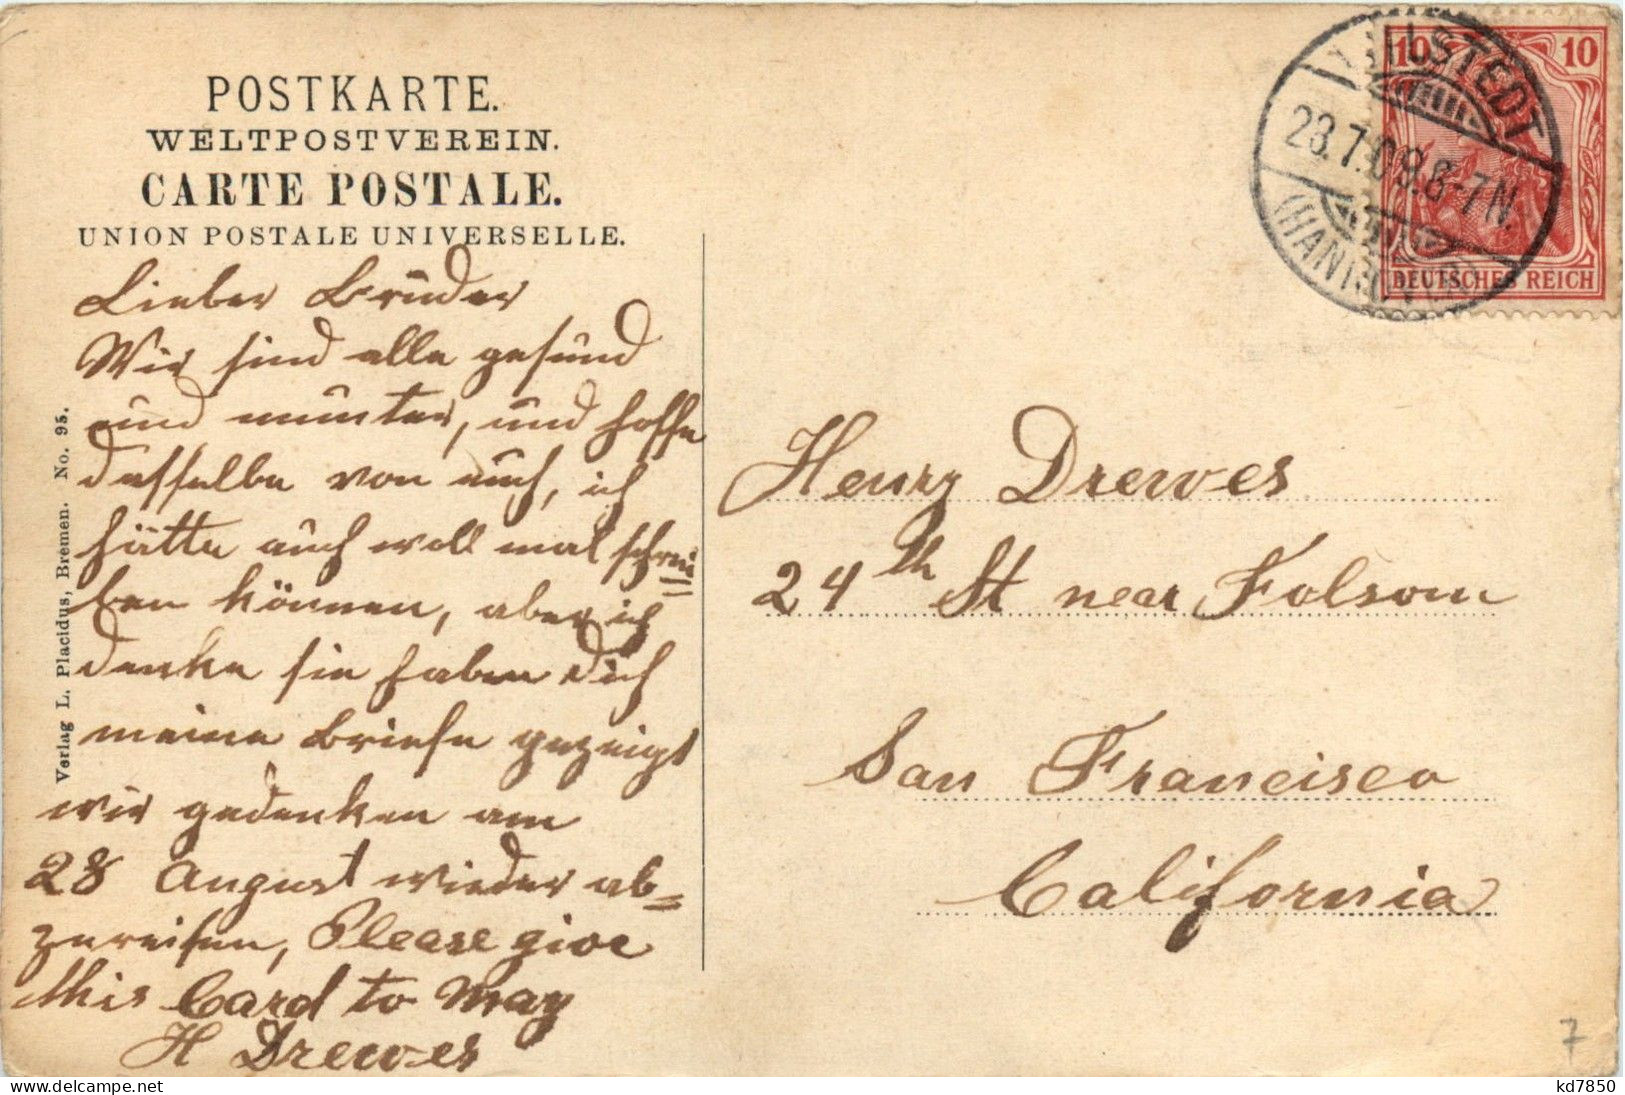 POSTKARTE.
WELTPOSTVEREIN.
CARTE POSTALE.
UNION POSTALE UNIVERSELLE.
Lieber Bruder
Wir sind alle gesund
und munter, und hoffe
dasselbe von euch, ich
hätte auch woll mal schrei=
ben können, aber ich
denke sie haben dich
meine Briefe gezeigt
wir gedenken am
28 August wieder ab=
zureisen, Please give
this Card to May
H Drewes
Verlag L. Placidus, Bremen. No. 95.
10 10
DEUTSCHES REICH
23.7.09.6-7N.
(HANNOVER)
Henry Drewes
24th St near Folsom
San Francisco
California
7
kd7850